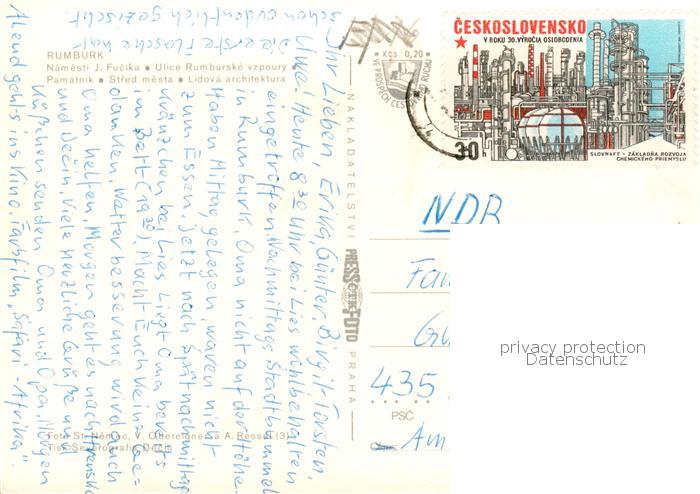 RUMBURK
Náměstí J. Fučíka • Ulice Rumburské vzpoury
Památník • Střed města • Lidová architektura
Ihr Lieben, Erika, Günter, Birgit, Torsten,
Uwe! Heute 8 30 Uhr bei Lies wohlbehalten
eingetroffen. Nachmittags Stadtbummel
Rumburk, Oma nicht auf der Höhe.
Haben Mittag gelegen, waren nicht
zum Essen. Jetzt nach Spätnachmittags-
kränzchen bei Lies liegt Oma bereits
im Bett (19 30). Macht Euch keine Ge-
danken, Wetterbesserung wird auch
Oma helfen. Morgen geht es nach
und Dečin. Viele herzliche Grüße u.
Küßchen senden Oma und Opa. Morgen
Abend gehts ins Kino. Farbfilm "Safari-Afrika".
die erste Flasche hat
schon ordentlich gezischt.
Foto St. Němec, V. Obereigner a A. Ressel (3)
Tisk Severografie Děčín
NAKLADATELSTVÍ
PRESSFOTO
PRAHA
Kčs 0,20
VE PROSPĚCH
ČESKOSLOVENSKO
V ROKU 30. VÝROČIA OSLOBODENIA
30h
SLOVNAFT - ZÁKLADŇA ROZVOJA
CHEMICKÉHO PRIEMYSLU
NDR
Fam
435
PSČ
Am
privacy protection
Datenschutz